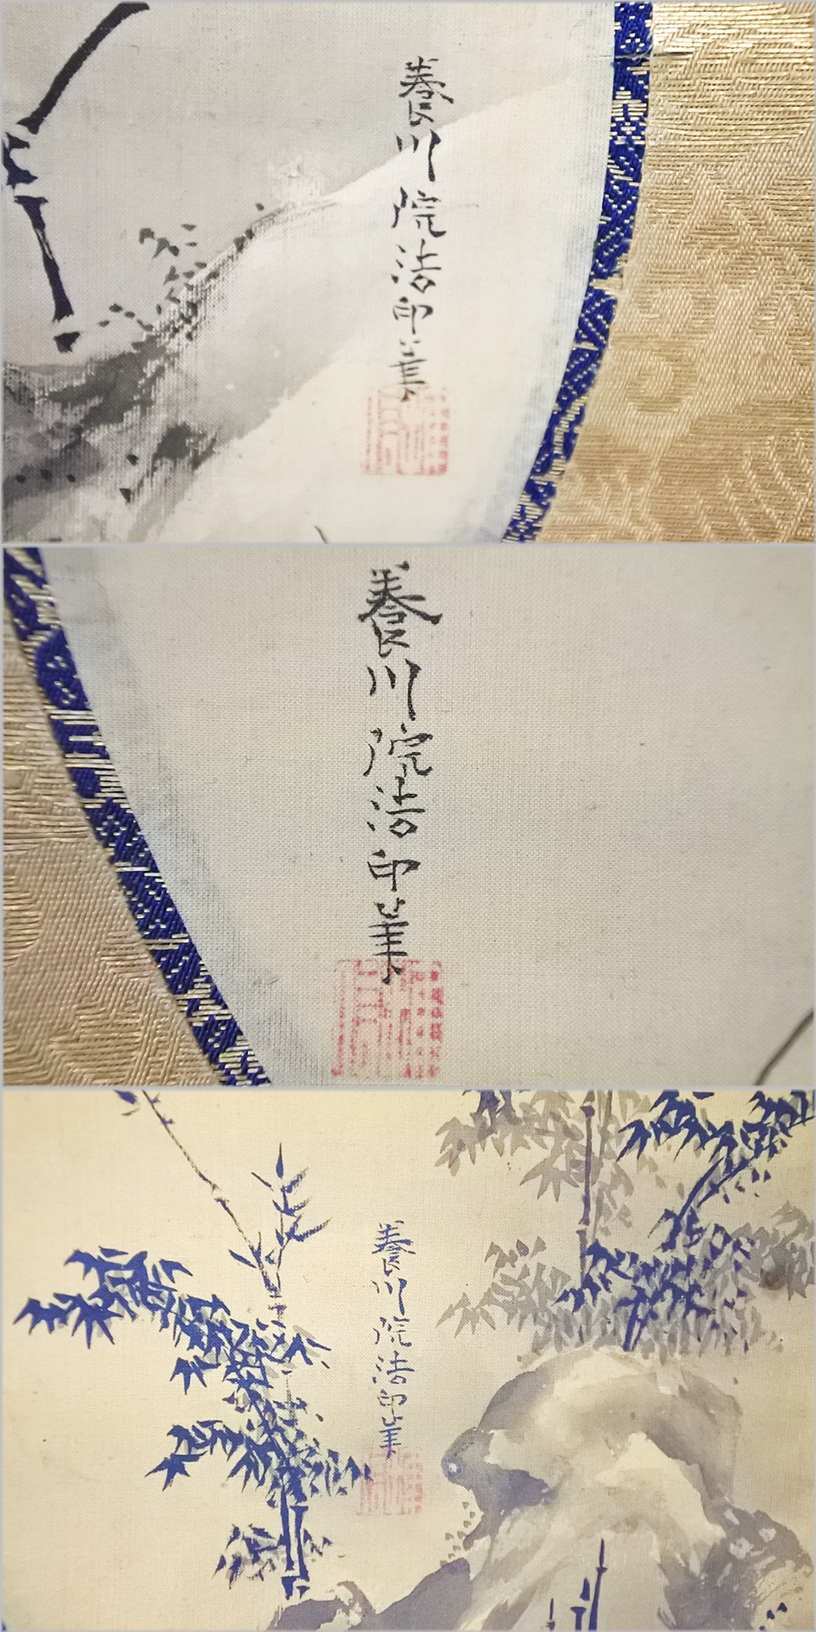 養川院法印筆
養川院法印筆
養川院法印筆